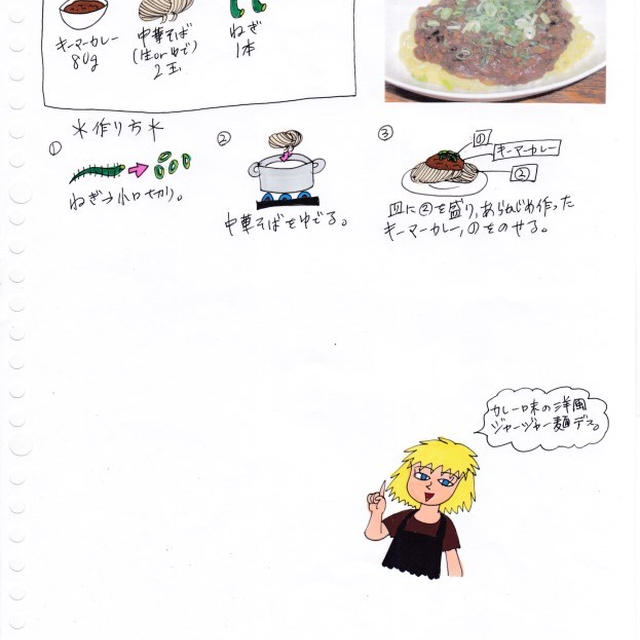 キーマカレー
80g
中華そば
(生orゆで)
2玉
ねぎ
1本
*作り方*
①
ねぎ→小口切り。
②
中華そばをゆでる。
③
①
キーマーカレー
②
皿に②を盛り,あらかじめ作った
キーマーカレー,①をのせる。
カレー味の洋風
ジャージャー麺デス。